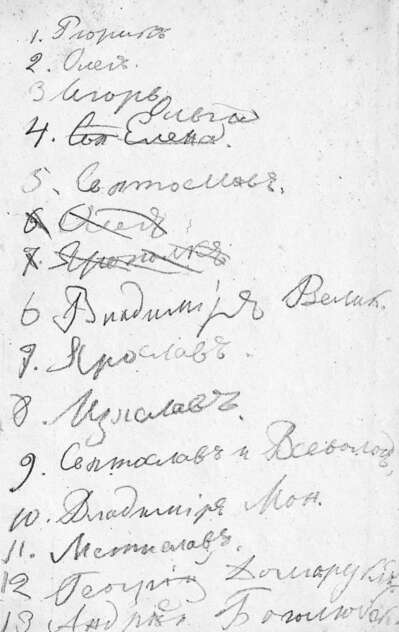 1. Рюрикъ
2. Олегъ
3 Игорь
Ольга
4. Св Елена.
5. Святославъ.
6 Олегъ
7. Ярополкъ
6 Владиміръ Велик.
7. Ярославъ.
8. Изяславъ.
9. Святославъ и Всеволод,
10. Владиміръ Мон.
11. Мстиславъ.
12 Георгій Долгорукій
13 Андрей Боголюбск.